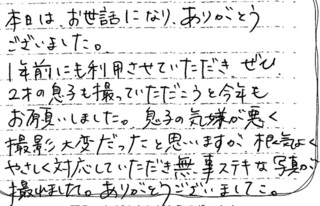 本日は、お世話になり、ありがとう
ございました。
1年前にも利用させていただき、ぜひ
2才の息子も撮っていただこうと今年も
お願いしました。息子の気嫌が悪く
撮影大変だったと思いますが、根気よく
やさしく対応していただき無事ステキな写真が
撮れました。ありがとうございました。